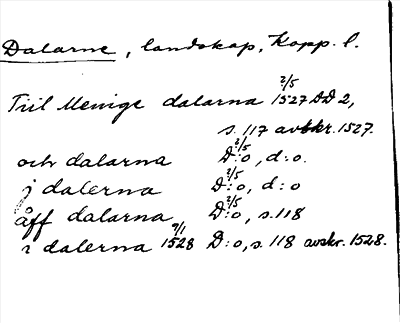 Dalarne, landskap, Kopp. l.
Till Menige dalarna 2/5 1527 DD 2,
s. 117 avskr. 1527.
och dalarna 2/5 D:o, d:o.
j dalerna 2/5 D:o, d:o
åff dalarna 2/5 D:o, s. 118
i dalerna 9/1 1528 D:o, s. 118 avskr. 1528.